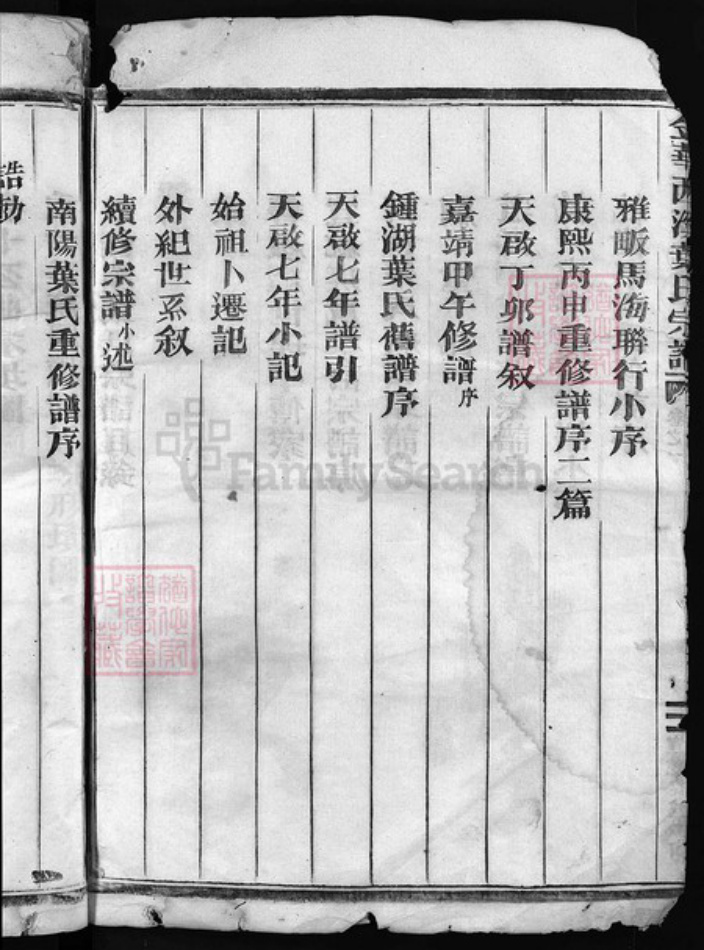 金華西湖葉氏宗譜
雅畈馬海聯行小序
康熙丙申重修譜序二篇
天啟丁卯譜叙
嘉靖甲午修譜序
鍾湖葉氏舊譜序
天啟七年譜引
天啟七年小記
始祖卜遷記
外紀世系叙
續修宗譜小述
南陽葉氏重修譜序
誥勅
FamilySearch